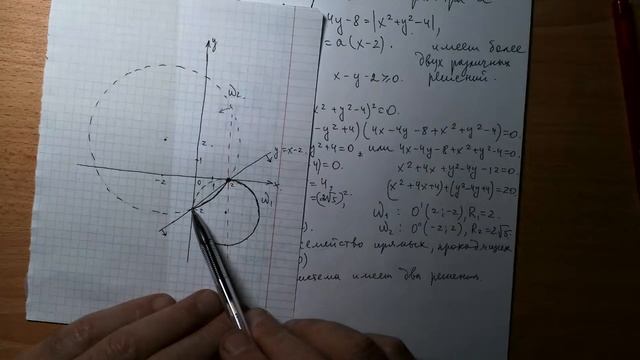 4y-8=|x²+y²-4|,
=a(x-2). имеет более
двух различных
x-y-2≥0. решений.
x²+y²-4)²=0.
-y²+4)(4x-4y-8+x²+y²-4)=0.
y²+4=0 или 4x-4y-8+x²+y²-4=0
4)=0. x²+4x+y²-4y-12=0.
=4, (x²+4x+4)+(y²-4y+4)=20
=(2√5)².
ω₁: O'(2;-2), R₁=2.
ω₂: O''(-2;2), R₂=2√5.
семейство прямых, проходящих
система имеет два решения.
y
ω₂
2
1
y=x-2
-2
0
1
2
x
ω₁
-2